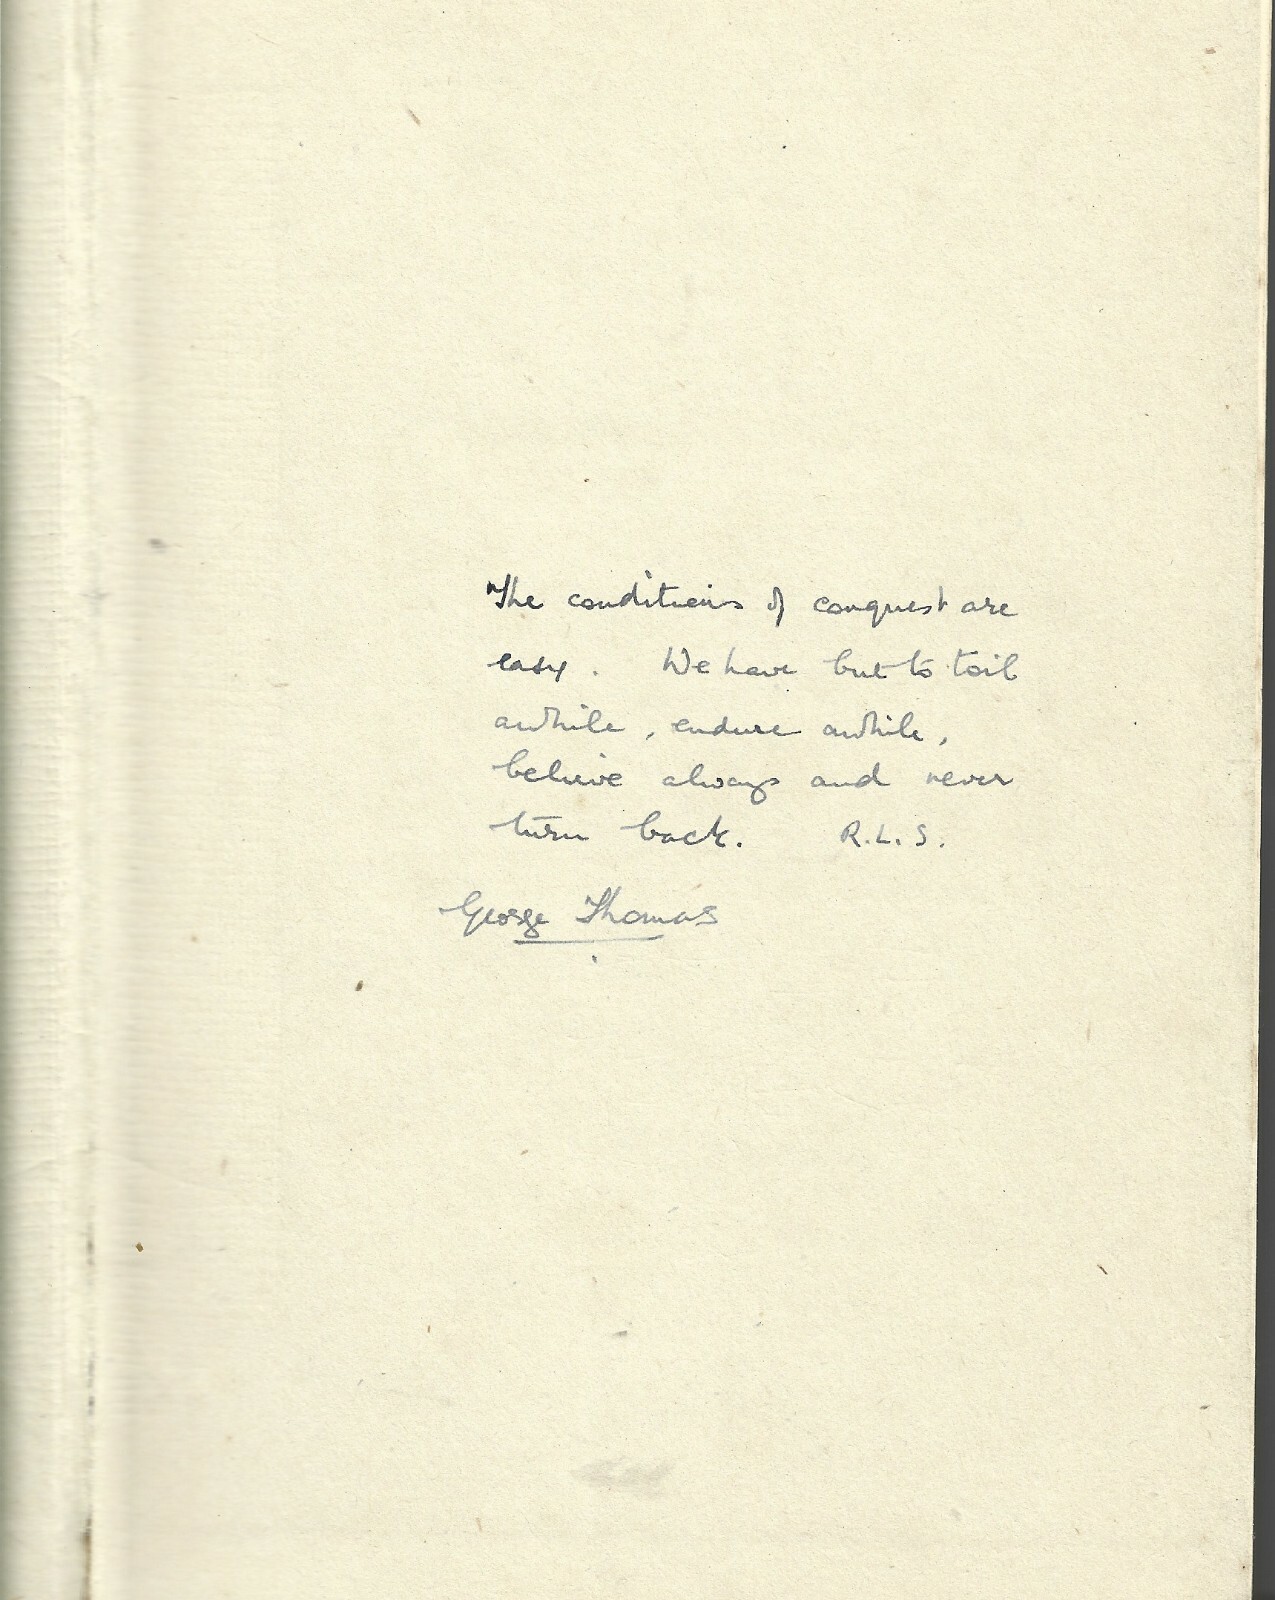 The conditions of conquest are
easy. We have but to toil
awhile, endure awhile,
believe always and never
turn back. R.L.S.
George Thomas